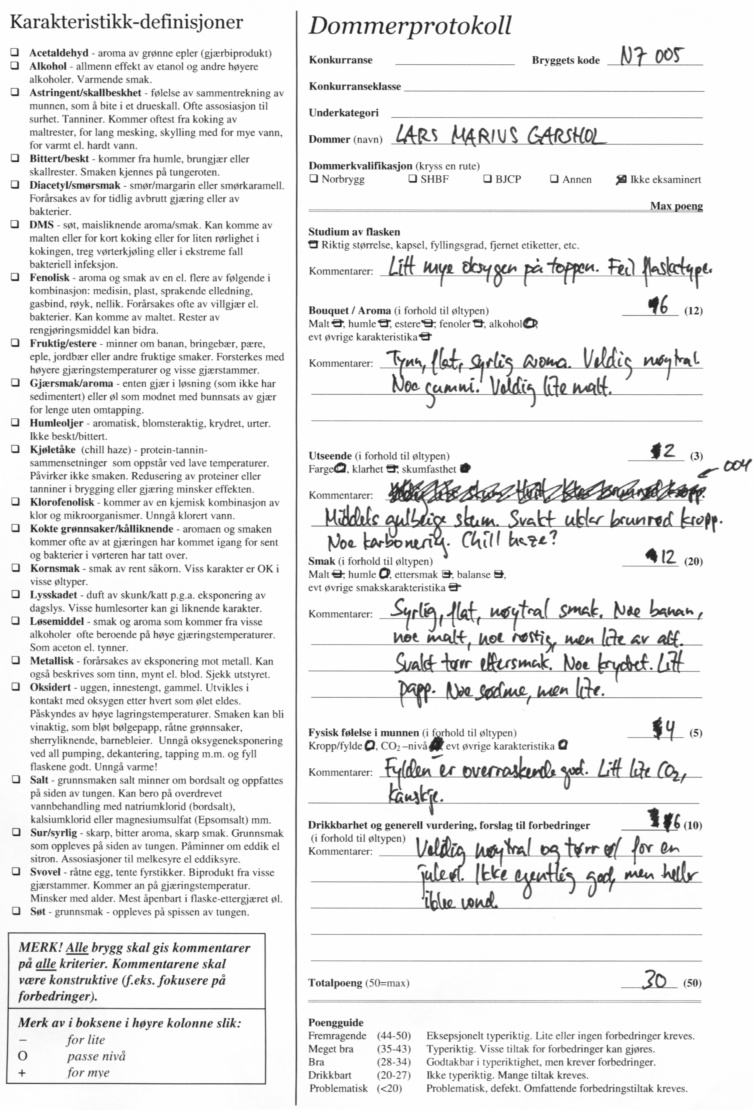 Karakteristikk-definisjoner
❏ Acetaldehyd - aroma av grønne epler (gjærbiprodukt)
❏ Alkohol - allmenn effekt av etanol og andre høyere
alkoholer. Varmende smak.
❏ Astringent/skallbeskhet - følelse av sammentrekning av
munnen, som å bite i et drueskall. Ofte assosiasjon til
surhet. Tanniner. Kommer oftest fra koking av
maltrester, for lang mesking, skylling med for mye vann,
for varmt el. hardt vann.
❏ Bittert/beskt - kommer fra humle, brungjær eller
skallrester. Smaken kjennes på tungeroten.
❏ Diacetyl/smørsmak - smør/margarin eller smørkaramell.
Forårsakes av for tidlig avbrutt gjæring eller av
bakterier.
❏ DMS - søt, maisliknende aroma/smak. Kan komme av
malten eller for kort koking eller for liten rørlighet i
kokingen, treg vørterkjøling eller i ekstreme fall
bakteriell infeksjon.
❏ Fenolisk - aroma og smak av en el. flere av følgende i
kombinasjon: medisin, plast, sprakende elledning,
gasbind, røyk, nellik. Forårsakes ofte av villgjær el.
bakterier. Kan komme av maltet. Rester av
rengjøringsmiddel kan bidra.
❏ Fruktig/estere - minner om banan, bringebær, pære,
eple, jordbær eller andre fruktige smaker. Forsterkes med
høyere gjæringstemperaturer og visse gjærstammer.
❏ Gjærsmak/aroma - enten gjær i løsning (som ikke har
sedimentert) eller øl som modnet med bunnsats av gjær
for lenge uten omtapping.
❏ Humleoljer - aromatisk, blomsteraktig, krydret, urter.
Ikke beskt/bittert.
❏ Kjøletåke (chill haze) - protein-tannin-
sammensetninger som oppstår ved lave temperaturer.
Påvirker ikke smaken. Redusering av proteiner eller
tanniner i brygging eller gjæring minsker effekten.
❏ Klorofenolisk - kommer av en kjemisk kombinasjon av
klor og mikroorganismer. Unngå klorert vann.
❏ Kokte grønnsaker/kålliknende - aromaen og smaken
kommer ofte av at gjæringen har kommet igang for sent
og bakterier i vørteren har tatt over.
❏ Kornsmak - smak av rent såkorn. Viss karakter er OK i
visse øltyper.
❏ Lysskadet - duft av skunk/katt p.g.a. eksponering av
dagslys. Visse humlesorter kan gi liknende karakter.
❏ Løsemiddel - smak og aroma som kommer fra visse
alkoholer ofte beroende på høye gjæringstemperaturer.
Som aceton el. tynner.
❏ Metallisk - forårsakes av eksponering mot metall. Kan
også beskrives som tinn, mynt el. blod. Sjekk utstyret.
❏ Oksidert - uggen, innestengt, gammel. Utvikles i
kontakt med oksygen etter hvert som ølet eldes.
Påskyndes av høye lagringstemperaturer. Smaken kan bli
vinaktig, som bløt bølgepapp, råtne grønnsaker,
sherryliknende, barnebleier. Unngå oksygeneksponering
ved all pumping, dekantering, tapping m.m. og fyll
flaskene godt. Unngå varme!
❏ Salt - grunnsmaken salt minner om bordsalt og oppfattes
på siden av tungen. Kan bero på overdrevet
vannbehandling med natriumklorid (bordsalt),
kalsiumklorid eller magnesiumsulfat (Epsomsalt) mm.
❏ Sur/syrlig - skarp, bitter aroma, skarp smak. Grunnsmak
som oppleves på siden av tungen. Påminner om eddik el
sitron. Assosiasjoner til melkesyre el eddiksyre.
❏ Svovel - råtne egg, tente fyrstikker. Biprodukt fra visse
gjærstammer. Kommer an på gjæringstemperatur.
Minsker med alder. Mest åpenbart i flaske-ettergjæret øl.
❏ Søt - grunnsmak - oppleves på spissen av tungen.
MERK! Alle brygg skal gis kommentarer
på alle kriterier. Kommentarene skal
være konstruktive (f.eks. fokusere på
forbedringer).
Merk av i boksene i høyre kolonne slik:
– for lite
O passe nivå
+ for mye
Dommerprotokoll
Konkurranse Bryggets kode N7 005
Konkurranseklasse
Underkategori
Dommer (navn) LARS MARIUS GARSHOL
Dommerkvalifikasjon (kryss en rute)
❏ Norbrygg ❏ SHBF ❏ BJCP ❏ Annen ☒ Ikke eksaminert
Max poeng
Studium av flasken
❏ Riktig størrelse, kapsel, fyllingsgrad, fjernet etiketter, etc.
Kommentarer: Litt mye oksygen på toppen. Feil flasketype.
Bouquet / Aroma (i forhold til øltypen) 6 (12)
Malt ❏, humle ❏, estere ❏, fenoler ❏, alkohol ❏,
evt øvrige karakteristika ❏
Kommentarer: Tynn, flat, syrlig aroma. Veldig nøytral.
Noe gummi. Veldig lite malt.
Utseende (i forhold til øltypen) 2 (3)
Farge ❏, klarhet ❏, skumfasthet ❏
← 004
Kommentarer:
Middels gulbeige skum. Svakt uklar brunrød kropp.
Noe karbonering. Chill haze?
Smak (i forhold til øltypen) 12 (20)
Malt ❏, humle ❏, ettersmak ❏, balanse ❏,
evt øvrige smakskarakteristika ❏
Kommentarer: Syrlig, flat, nøytral smak. Noe banan,
noe malt, noe røstig, men lite av alt.
Svakt tørr ettersmak. Noe krydret. Litt
papp. Noe sødme, men lite.
Fysisk følelse i munnen (i forhold til øltypen) 4 (5)
Kropp/fylde ❏, CO₂ –nivå ❏ evt øvrige karakteristika ❏
Kommentarer: Fylden er overraskende god. Litt lite CO₂,
kanskje.
Drikkbarhet og generell vurdering, forslag til forbedringer 6 (10)
(i forhold til øltypen)
Kommentarer: Veldig nøytral og tørr øl for en
juleøl. Ikke egentlig god, men heller
ikke vond.
Totalpoeng (50=max) 30 (50)
Poengguide
Fremragende (44-50) Eksepsjonelt typeriktig. Lite eller ingen forbedringer kreves.
Meget bra (35-43) Typeriktig. Visse tiltak for forbedringer kan gjøres.
Bra (28-34) Godtakbar i typeriktighet, men krever forbedringer.
Drikkbart (20-27) Ikke typeriktig. Mange tiltak kreves.
Problematisk (<20) Problematisk, defekt. Omfattende forbedringstiltak kreves.